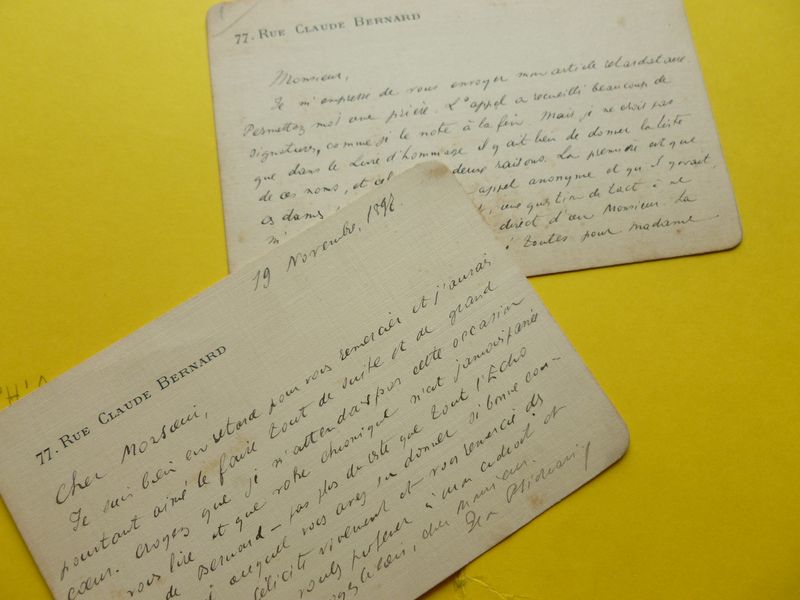 77. RUE CLAUDE BERNARD
Monsieur,
Je m'empresse de vous envoyer mon article retardataire.
Permettez moi une prière. L'appel a recueilli beaucoup de
signatures, comme je le note à la fin. Mais je ne crois pas
que dans le Livre d'hommage il y ait lieu de donner la liste
de ces noms, et cel deux raisons. La première est que
ces dames appel anonyme et qu'il y avait,
m' une question de tact à ne
direct d'un Monsieur. La
toutes pour madame
19 Novembre, 189
77. RUE CLAUDE BERNARD
Cher Monsieur,
Je suis bien en retard pour vous remercier et j'aurais
pourtant aimé le faire tout de suite et de grand
cœur. Croyez que je n'attendais pas cette occasion
vous lire et que votre chronique n'est jamais passée
de Bernard — pas plus du reste que tout l'Echo
auquel vous avez su donner si bonne con-
félicite vivement et vous remercie des
voulu proférer à mon endroit et
cher Monsieur.